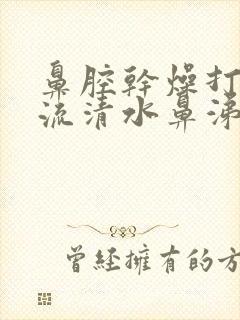 鼻腔幹燥打
流清水鼻涕
曾經擁有的方